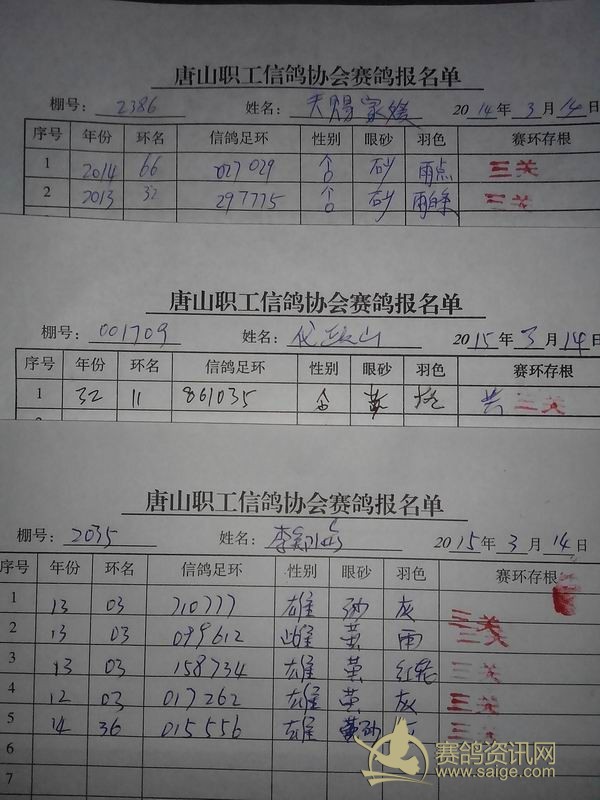 唐山职工信鸽协会赛鸽报名单
棚号: 2386 姓名: 天赐家缘 2014年3月14日
序号 年份 环名 信鸽足环 性别 眼砂 羽色 赛环存根
1 2014 66 027029 砂 雨点 三关
2 2013 32 297775 砂 三关
唐山职工信鸽协会赛鸽报名单
棚号: 001709 姓名: 2015年3月14日
序号 年份 环名 信鸽足环 性别 眼砂 羽色 赛环存根
1 32 11 861035 黄 三关
唐山职工信鸽协会赛鸽报名单
棚号: 2035 姓名: 2015年3月14日
序号 年份 环名 信鸽足环 性别 眼砂 羽色 赛环存根
1 13 03 710777 雄 砂 灰 三关
2 13 03 099612 雌 黄 雨 三关
3 13 03 158734 雄 黄 红轮 三关
4 12 03 017262 雄 黄 灰 三关
5 14 36 015556 雄 黄砂 三关
6
7
赛鸽资讯网
www.saige.com